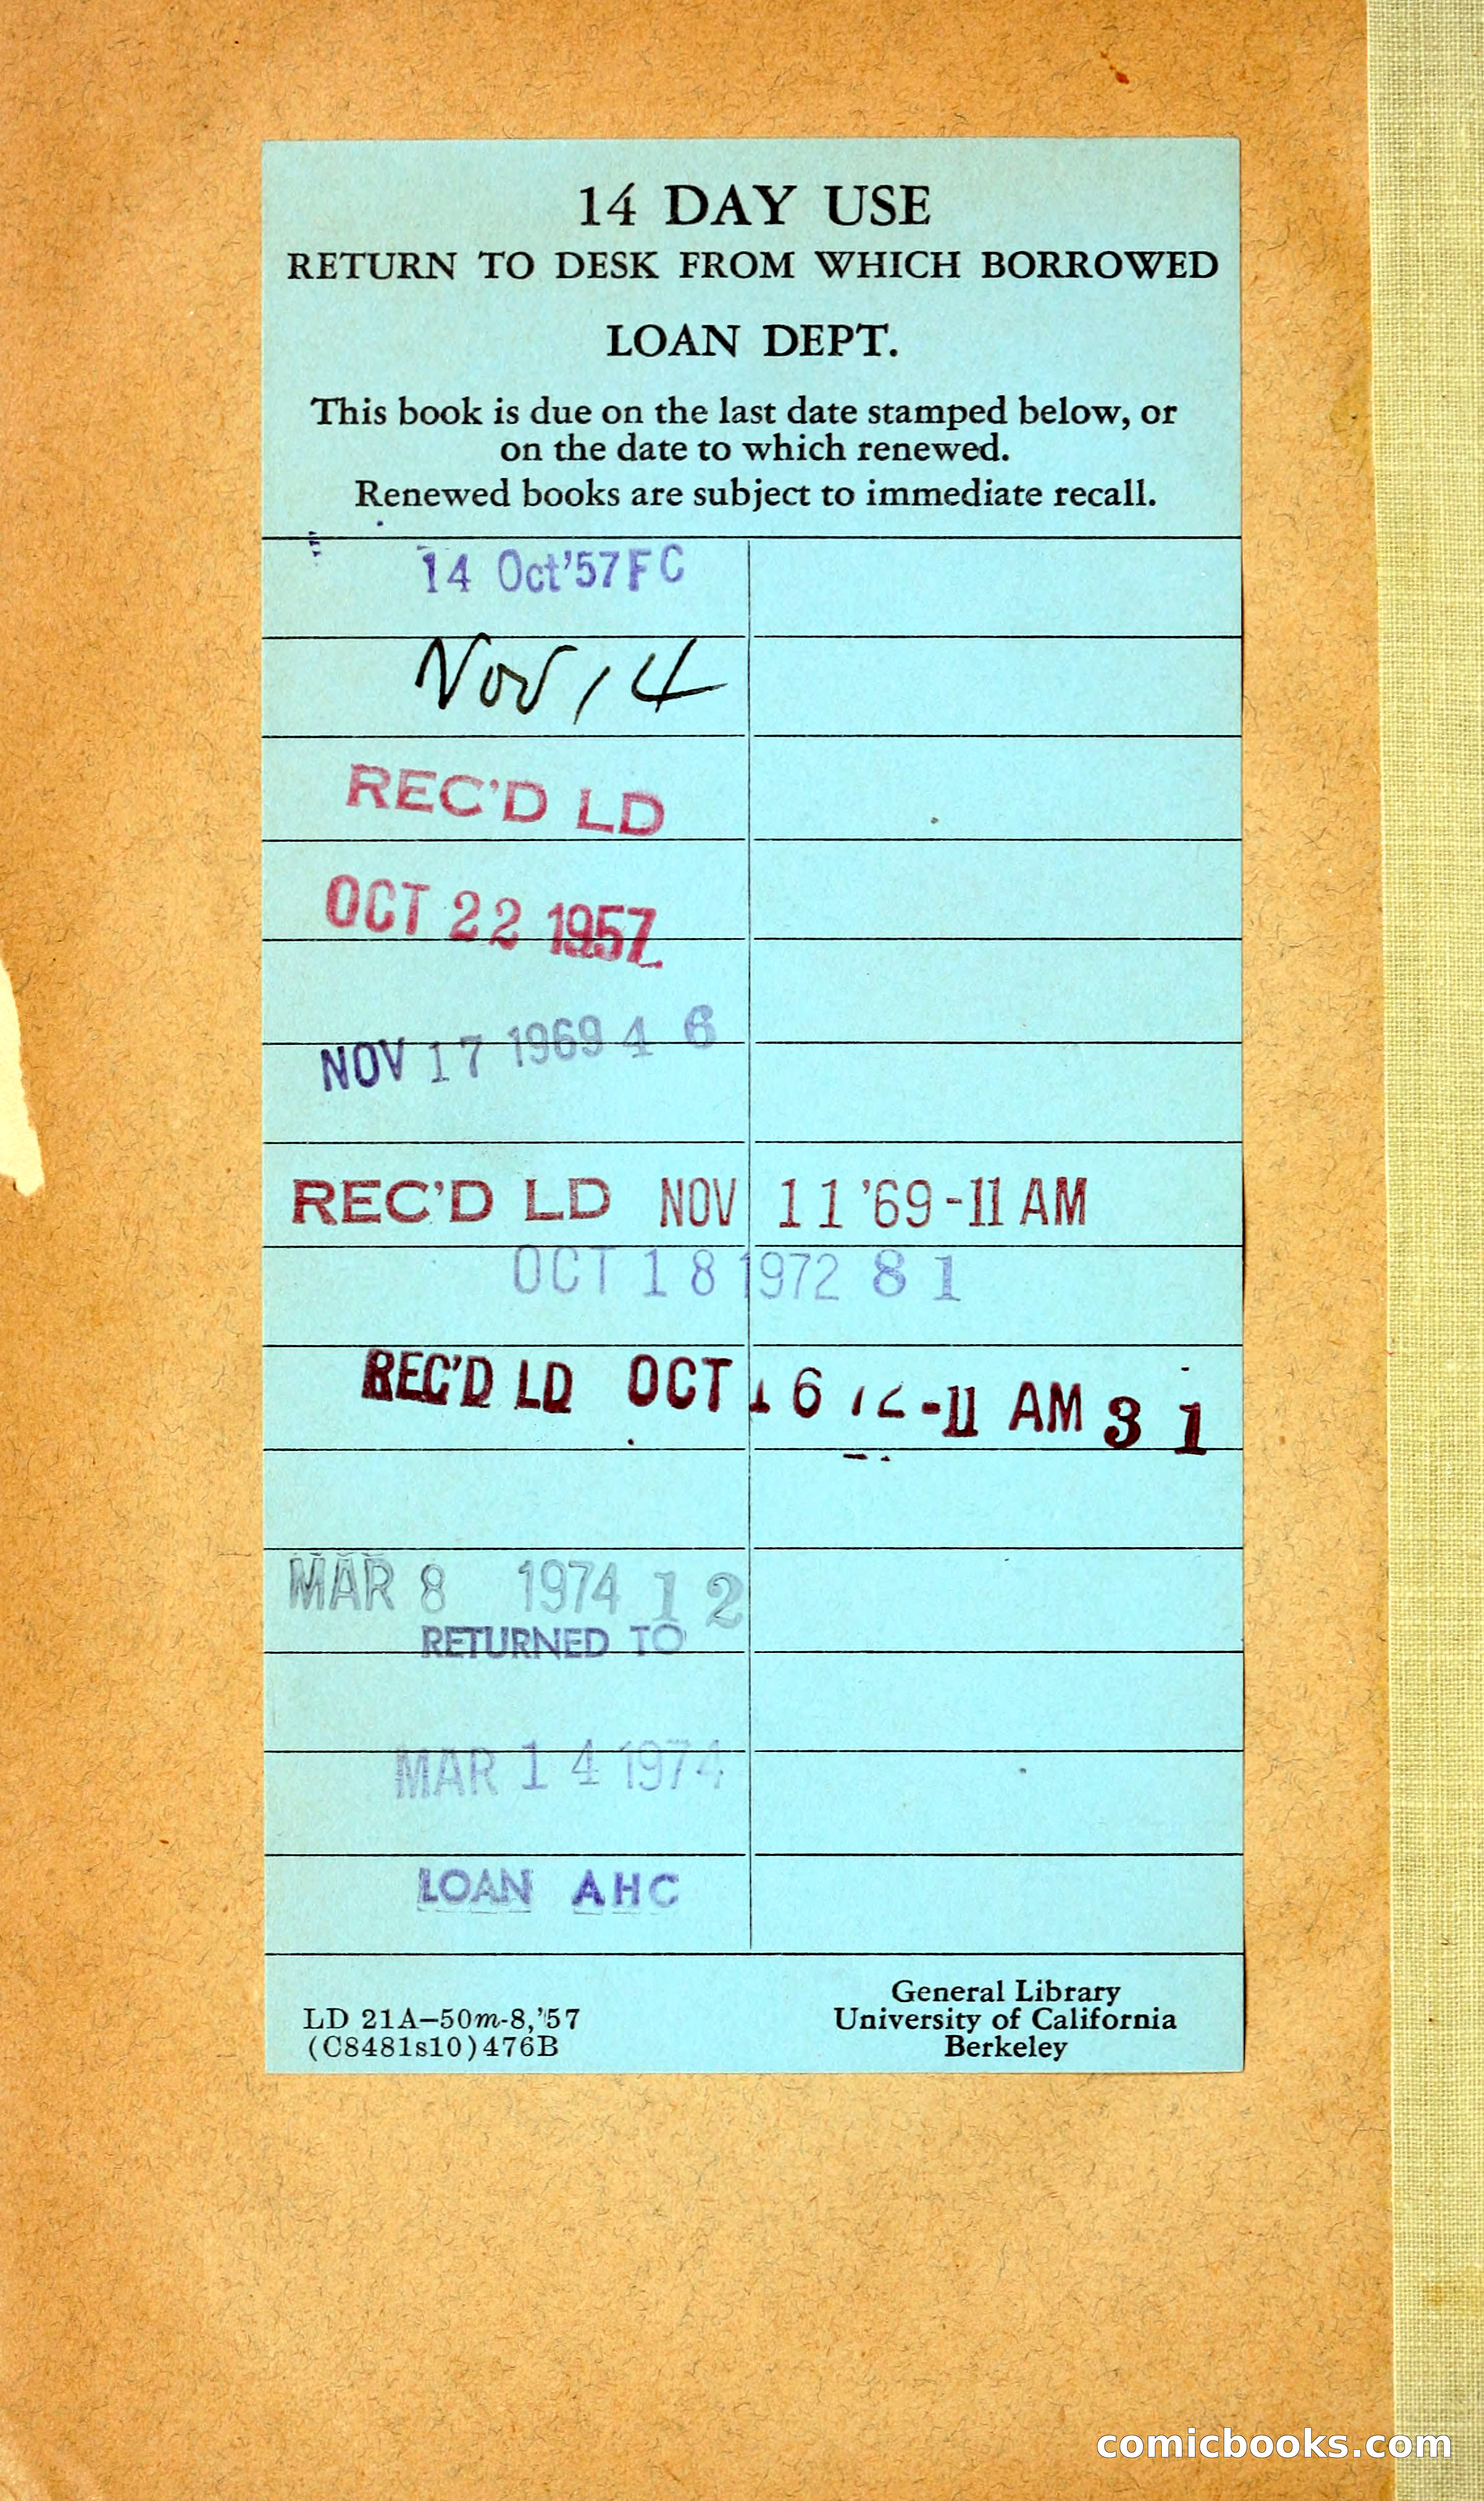 14 DAY USE
RETURN TO DESK FROM WHICH BORROWED
LOAN DEPT.
This book is due on the last date stamped below, or
on the date to which renewed.
Renewed books are subject to immediate recall.
14 Oct'57FC
Nov 14
REC'D LD
OCT 22 1957
NOV 17 1969 4 6
REC'D LD NOV 11 '69 -11 AM
OCT 18 1972 8 1
REC'D LD OCT 16 72 -11 AM 3 1
MAR 8 1974 1 2
RETURNED TO
MAR 14 1974
LOAN AHC
LD 21A–50m-8,'57
(C8481s10)476B
General Library
University of California
Berkeley
comicbooks.com